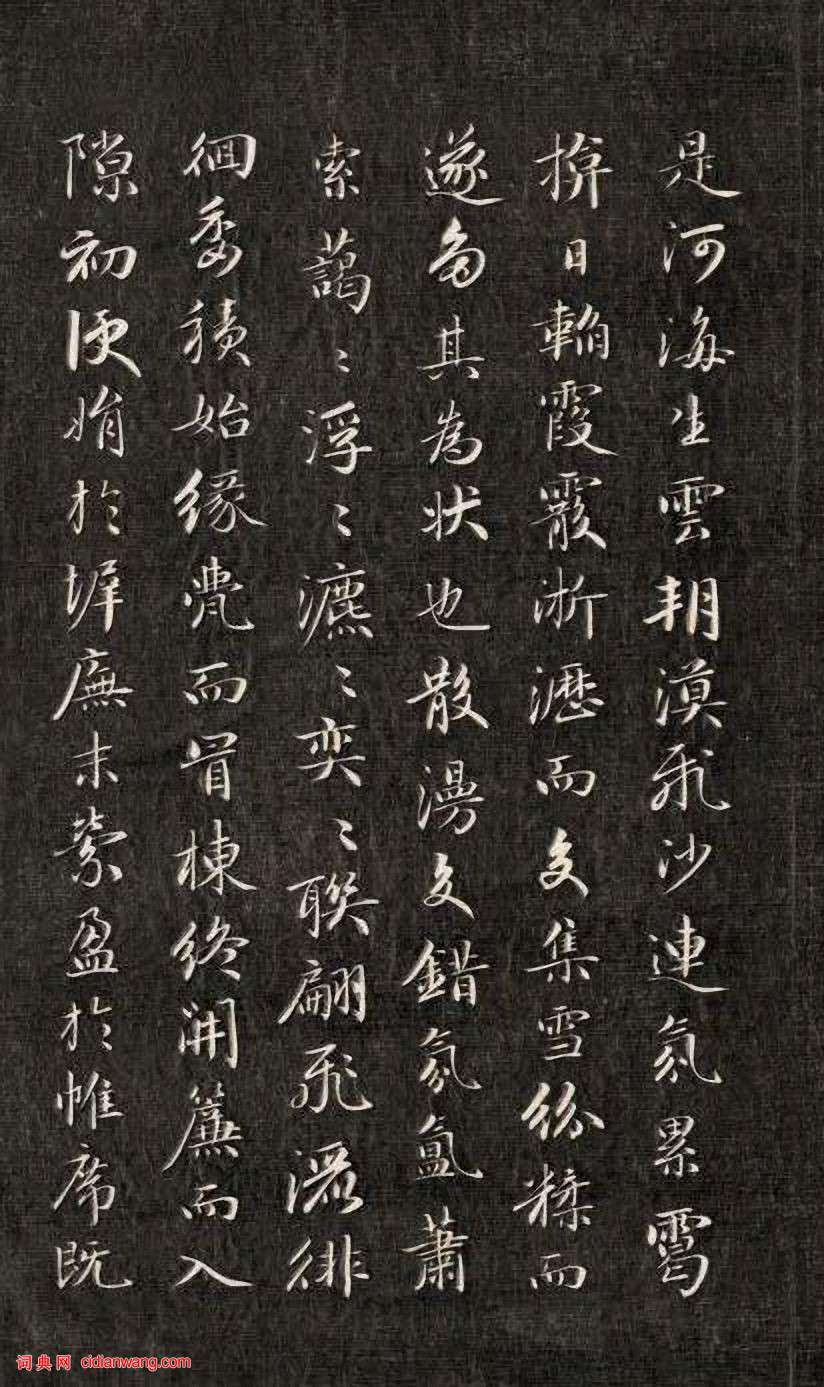 是河海生雲朔漠飛沙連氛累靄
揜日韜霞霰淅瀝而交集雪紛糅而
遂多其為狀也散漫交錯氛氳蕭
索藹〻浮〻瀌〻奕〻聯翩飛灑徘
徊委積始緣甍而冒棟終開簾而入
隙初便娟於墀廡末縈盈於帷席既
词典网 cidianwang.com